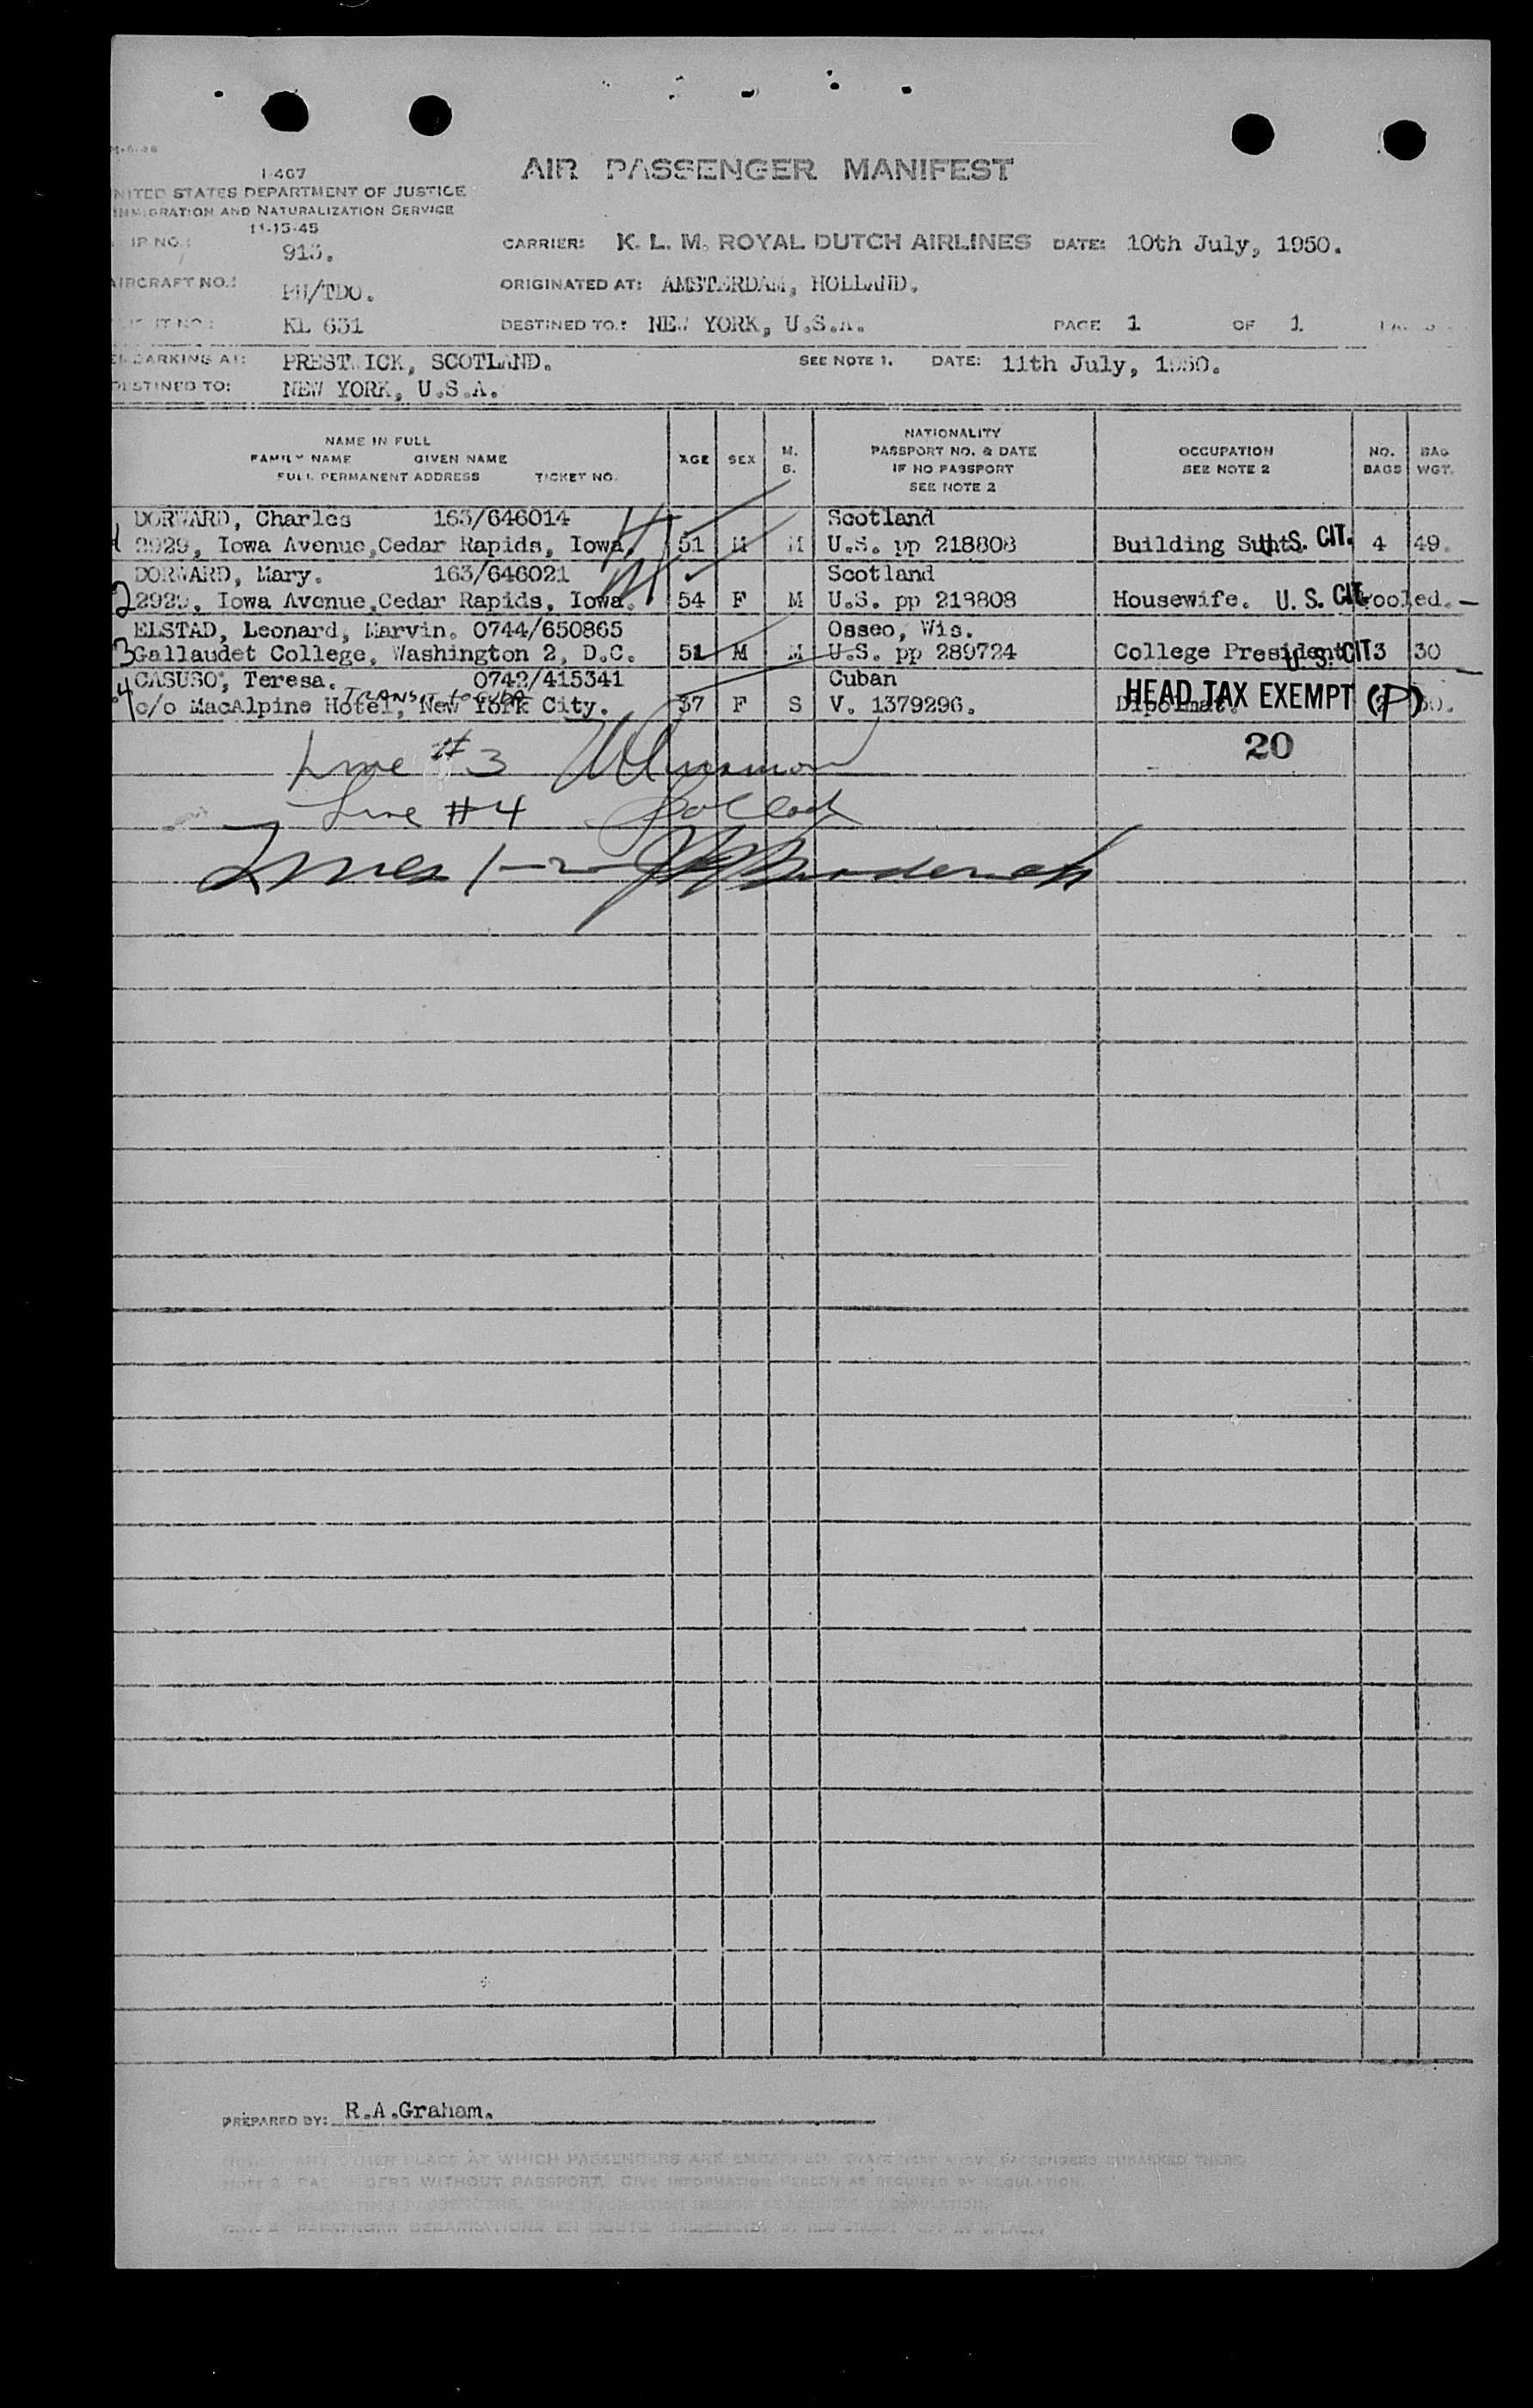 AIR PASSENGER MANIFEST
I-467
UNITED STATES DEPARTMENT OF JUSTICE
IMMIGRATION AND NATURALIZATION SERVICE
11-15-45
IP NO.: 913.
CARRIER: K. L. M. ROYAL DUTCH AIRLINES DATE: 10th July, 1950.
AIRCRAFT NO.: PH/TDO. ORIGINATED AT: AMSTERDAM, HOLLAND.
KL 631 DESTINED TO.: NEW YORK, U.S.A. PAGE 1 OF 1
EMBARKING AT: PRESTWICK, SCOTLAND. SEE NOTE 1. DATE: 11th July, 1950.
DESTINED TO: NEW YORK, U.S.A.
NAME IN FULL
FAMILY NAME GIVEN NAME
FULL PERMANENT ADDRESS TICKET NO.
AGE
SEX
M.
S.
NATIONALITY
PASSPORT NO. & DATE
IF NO PASSPORT
SEE NOTE 2
OCCUPATION
SEE NOTE 2
NO.
BAGS
BAG
WGT.
DORWARD, Charles 163/646014 Scotland
2929, Iowa Avenue,Cedar Rapids, Iowa. 51 M M U.S. pp 218808 Building Supt. U.S. CIT. 4 49.
DORWARD, Mary. 163/646021 Scotland
2 2929, Iowa Avenue,Cedar Rapids, Iowa. 54 F M U.S. pp 218808 Housewife. U. S. CIT. Pooled.
ELSTAD, Leonard, Marvin. 0744/650865 Osseo, Wis.
3 Gallaudet College, Washington 2, D.C. 51 M M U.S. pp 289724 College President U. S. CIT 3 30
CASUSO, Teresa. 0742/415341 Cuban
TRANSIT to CUBA
4 c/o MacAlpine Hotel, New York City. 37 F S V. 1379296. Diplomat. HEAD TAX EXEMPT (P)
20
Line #3
Line #4
Lines 1-2
PREPARED BY: R.A.Graham.